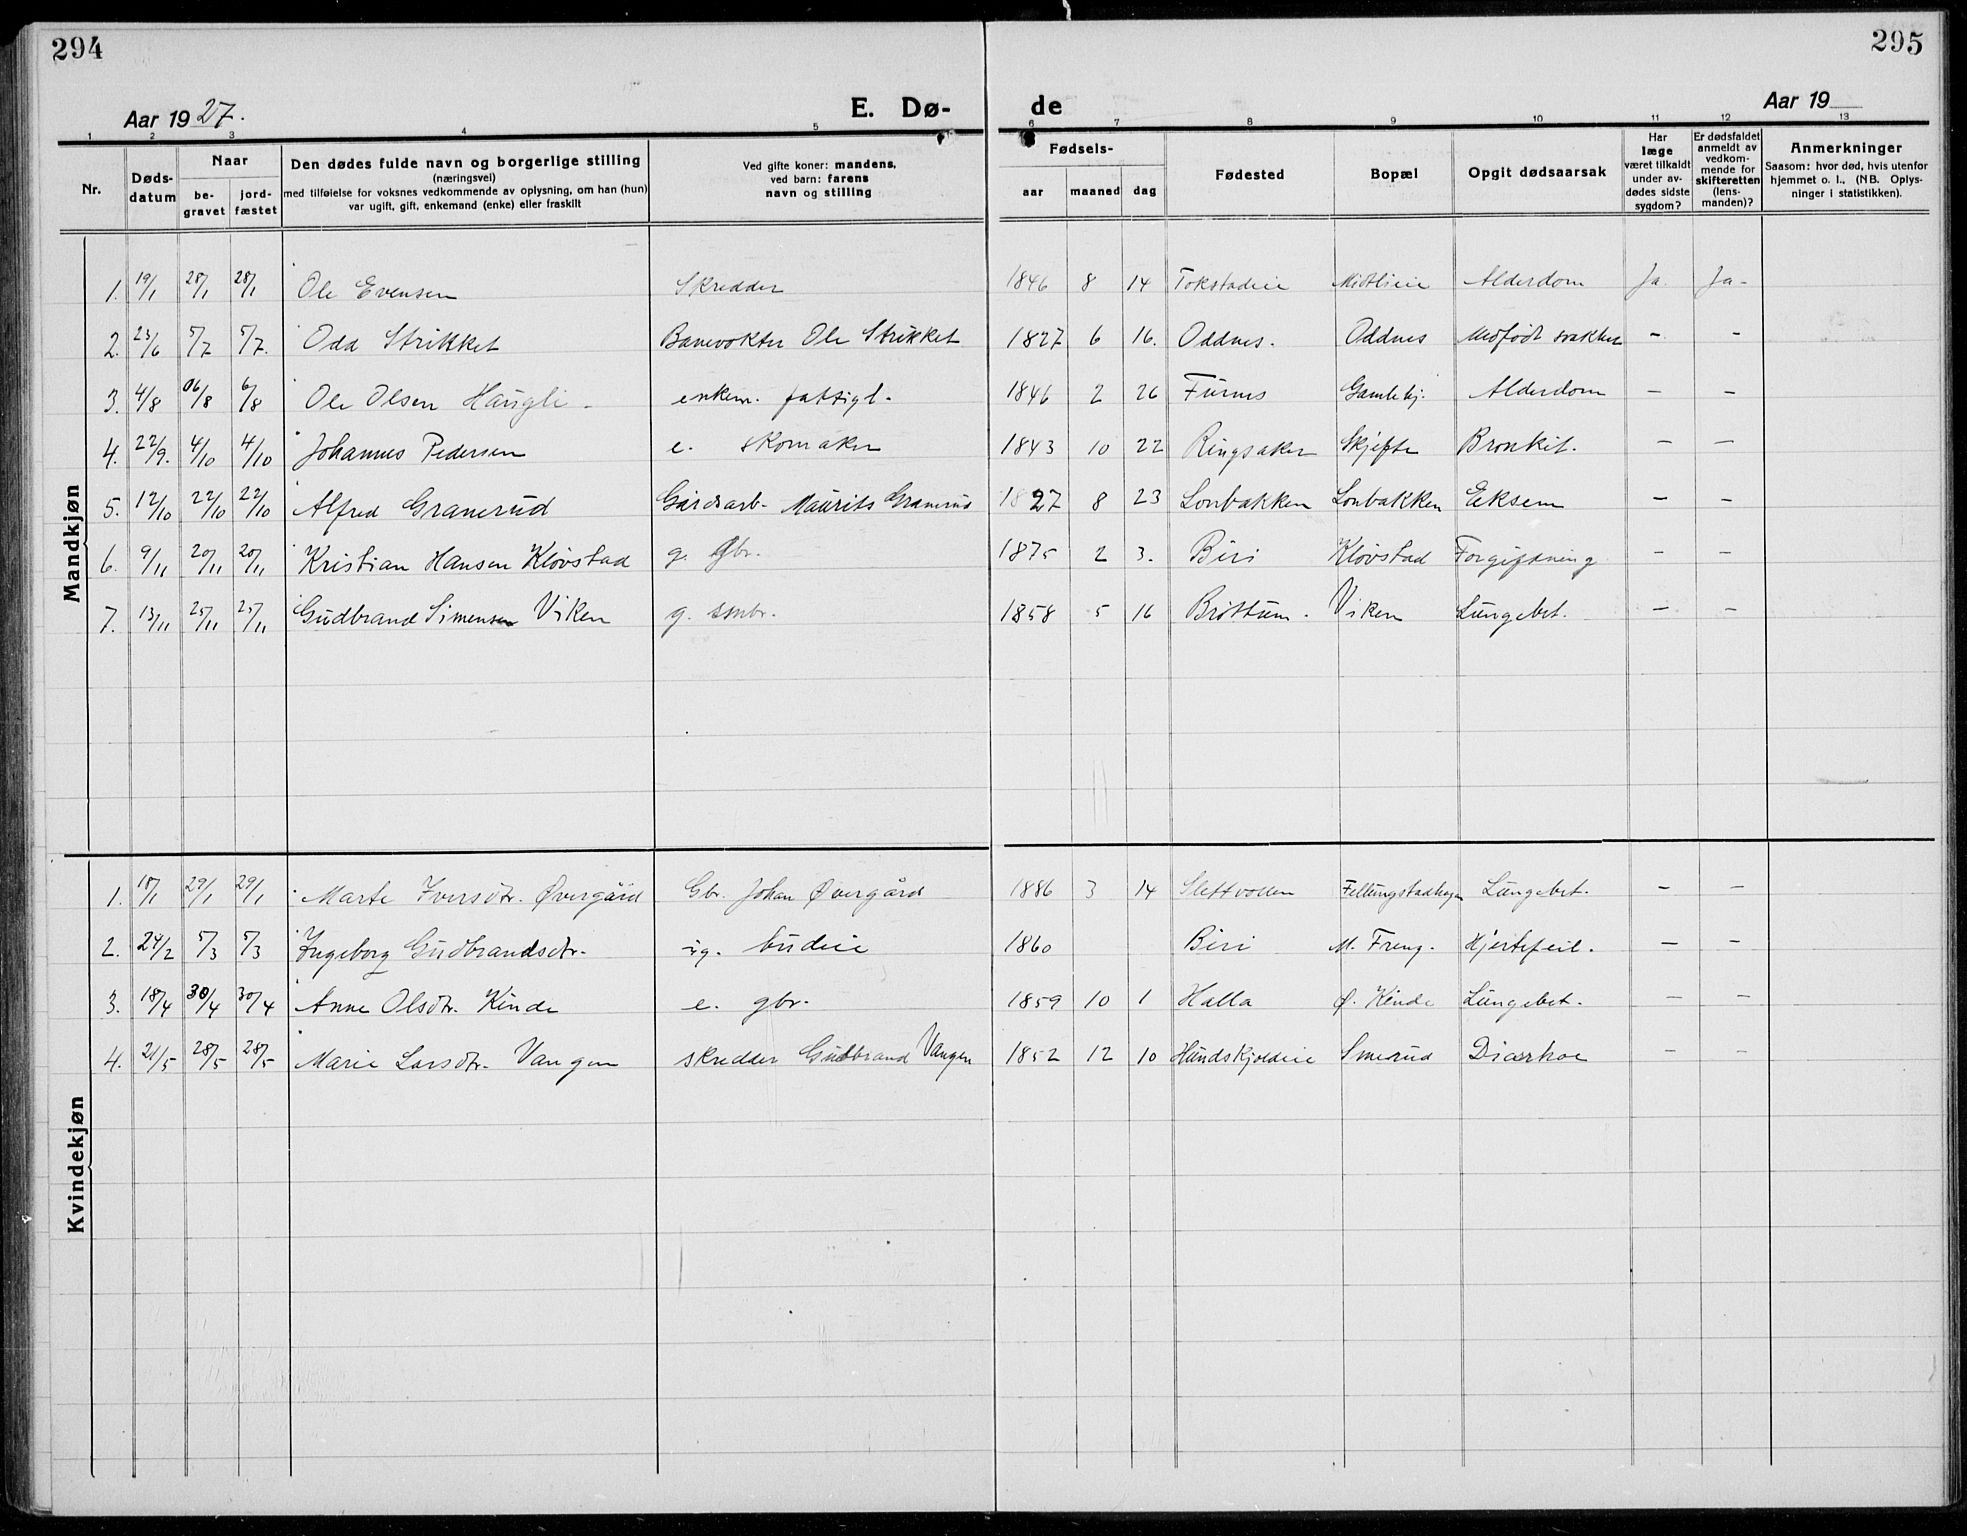 294
295
Aar 1927.
E. Dø-
de
Aar 19
1 2 3 4 5 6 7 8 9 10 11 12 13
Nr.
Døds-
datum
Naar
be-
gravet
jord-
fæstet
Den dødes fulde navn og borgerlige stilling
(næringsvei)
med tilføielse for voksnes vedkommende av oplysning, om han (hun)
var ugift, gift, enkemand (enke) eller fraskilt
Ved gifte koner: mandens,
ved barn: farens
navn og stilling
Fødsels-
aar
maaned
dag
Fødested
Bopæl
Opgit dødsaarsak
Har
læge
været tilkaldt
under av-
dødes sidste
sygdom?
Er dødsfaldet
anmeldt av
vedkom-
mende for
skifteretten
(lens-
manden)?
Anmerkninger
Saasom: hvor død, hvis utenfor
hjemmet o. l., (NB. Oplys-
ninger i statistikken).
Mandkjøn
1. 19/1 28/1 28/1 Ole Evensen Skredder 1846 8 14 Tokstadeie Midtlieie Alderdom Ja. Ja-
2. 23/6 5/7 5/7. Odd Strikket Banevokter Ole Strikket 1827 6 16. Oddnes. Oddnes Medfødt svakhet - -
3. 4/8 06/8 6/8 Ole Olsen Haugli - enkem. fattigl. 1846 2 26 Furnes Gamlehj. Alderdom - -
4. 22/9. 4/10 4/10 Johannes Pedersen e. skomaker 1843 10 22 Ringsaker Skjefte Bronkit. - -
5. 12/10 22/10 22/10 Alfred Granerud Gårdsarb. Maurits Granerud 1827 8 23 Lonbakken Lonbakken Eksem - -
6. 9/11 20/11 20/11 Kristian Hansen Kløvstad g. gbr. 1875 2 3. Biri Kløvstad Forgiftning - -
7. 13/11 25/11 25/11 Gudbrand Simensen Viken g. smbr. 1858 5 16 Brøttum. Viken Lungebet. - -
Kvindekjøn
1. 18/1 29/1 29/1 Marte Iversdtr. Øvergård Gbr. Johan Øvergård 1886 3 14 Slettvollen Lungebet. - -
2. 24/2 5/3 5/3 Ingeborg Gudbrandsdtr. ug. budeie 1860 Biri M. Freng. Hjertefeil. - -
3. 18/4 30/4 30/4 Anne Olsdtr. Kinde e. gbr. 1859 10 1 Halla Ø. Kinde Lungebet. - -
4. 21/5 28/5 28/5 Marie Larsdtr. Vangen skredder Gudbrand Vangen 1852 12 10 Hundskjoldeie Smerud Diarrhoe - -